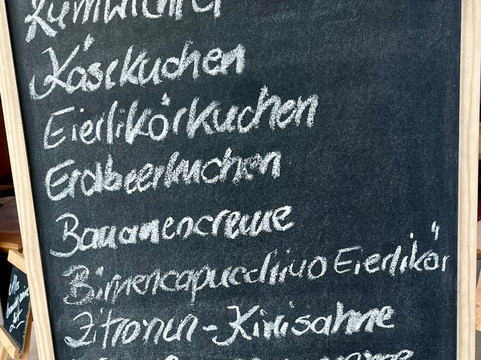 Käsekuchen
Eierlikörkuchen
Erdbeerkuchen
Bananencreme
Birnencapucchino Eierlikör
Zitronen-Kiwisahne